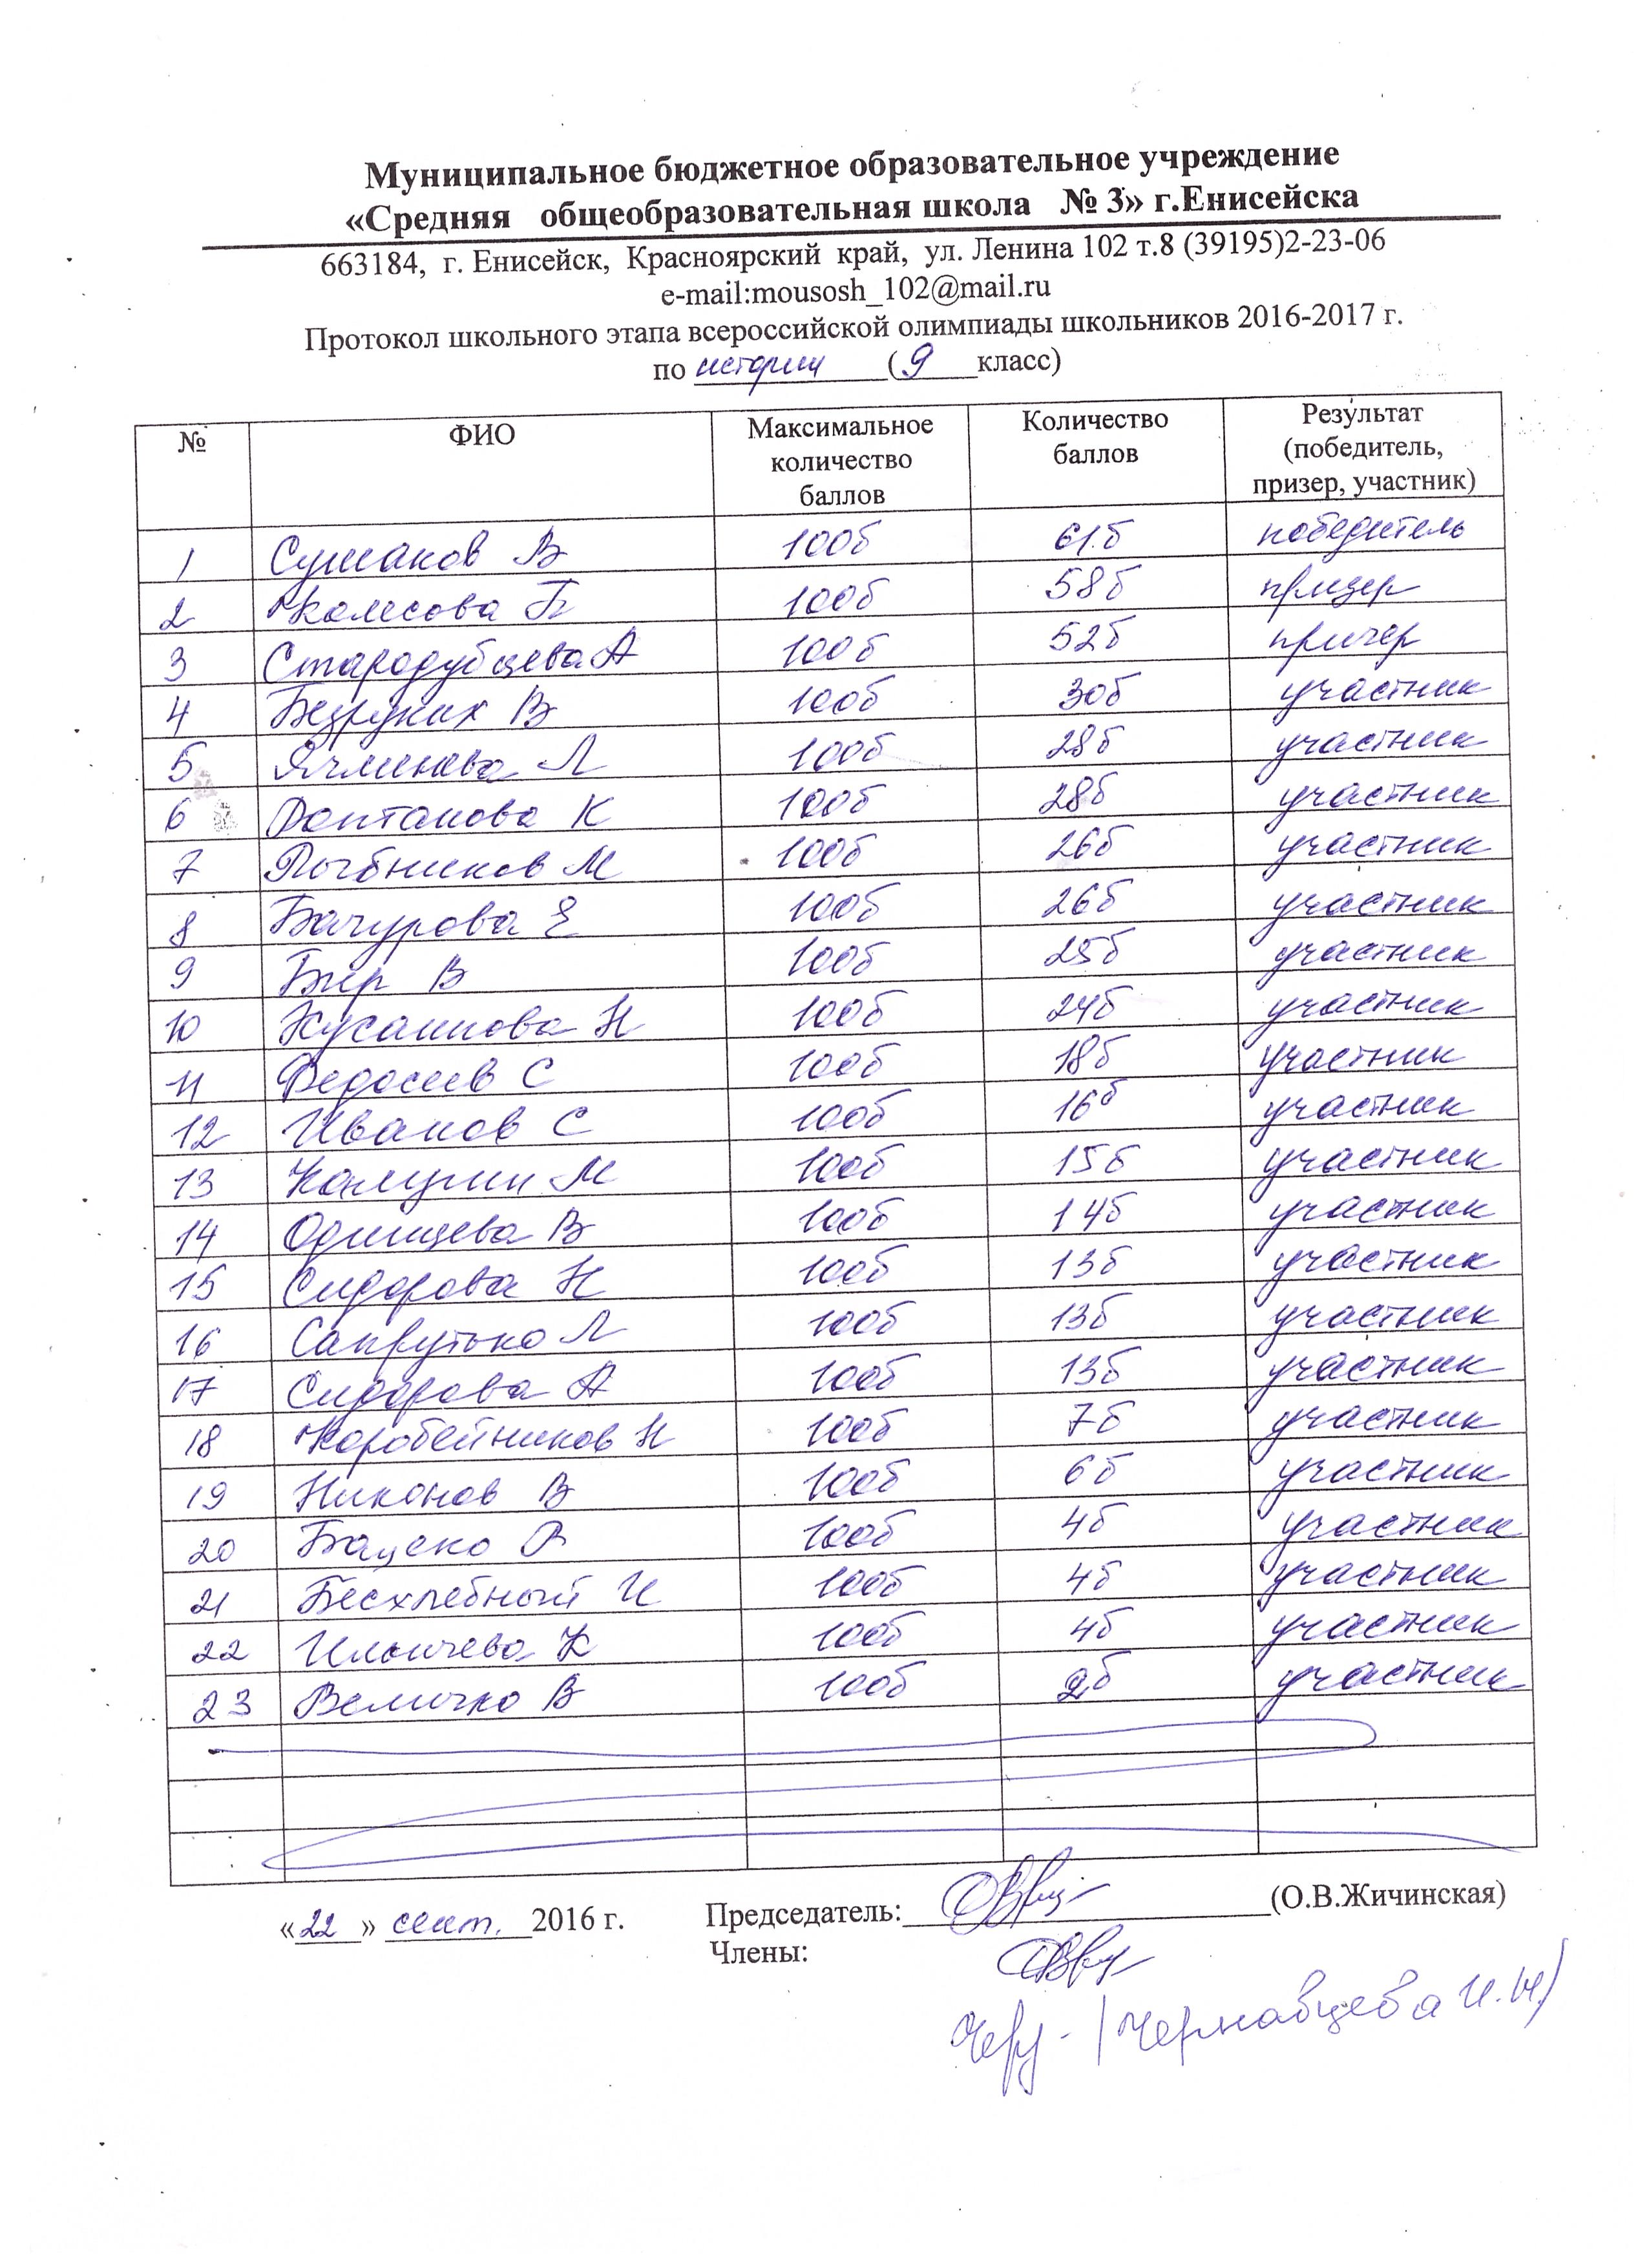 Муниципальное бюджетное образовательное учреждение
«Средняя общеобразовательная школа № 3» г.Енисейска
663184, г. Енисейск, Красноярский край, ул. Ленина 102 т.8 (39195)2-23-06
e-mail:mousosh_102@mail.ru
Протокол школьного этапа всероссийской олимпиады школьников 2016-2017 г.
по истории (9 класс)
№ ФИО Максимальное количество баллов Количество баллов Результат (победитель, призер, участник)
1 Сушаков В 100б 61б победитель
2 Колесова Б 100б 58б призер
3 Стародубцева А 100б 52б призер
4 Безруких В 100б 30б участник
5 Ячменева Л 100б 28б участник
6 К 100б 28б участник
7 Рыбников М 100б 26б участник
8 Бачурова Е 100б 26б участник
9 Бир В 100б 25б участник
10 Хусаинова Н 100б 24б участник
11 Федосеев С 100б 18б участник
12 Иванов С 100б 16б участник
13 Калугин М 100б 15б участник
14 Одинцева В 100б 14б участник
15 Сидорова Н 100б 13б участник
16 Сапрутько Л 100б 13б участник
17 Сидорова А 100б 13б участник
18 Коробейников Н 100б 7б участник
19 Никонов В 100б 6б участник
20 Бацено 100б 4б участник
21 Бесхлебный И 100б 4б участник
22 Ильичева К 100б 4б участник
23 Величко В 100б 2б участник
«22» сент. 2016 г. Председатель: (О.В.Жичинская)
Члены:
(Чернавцева И.Н)